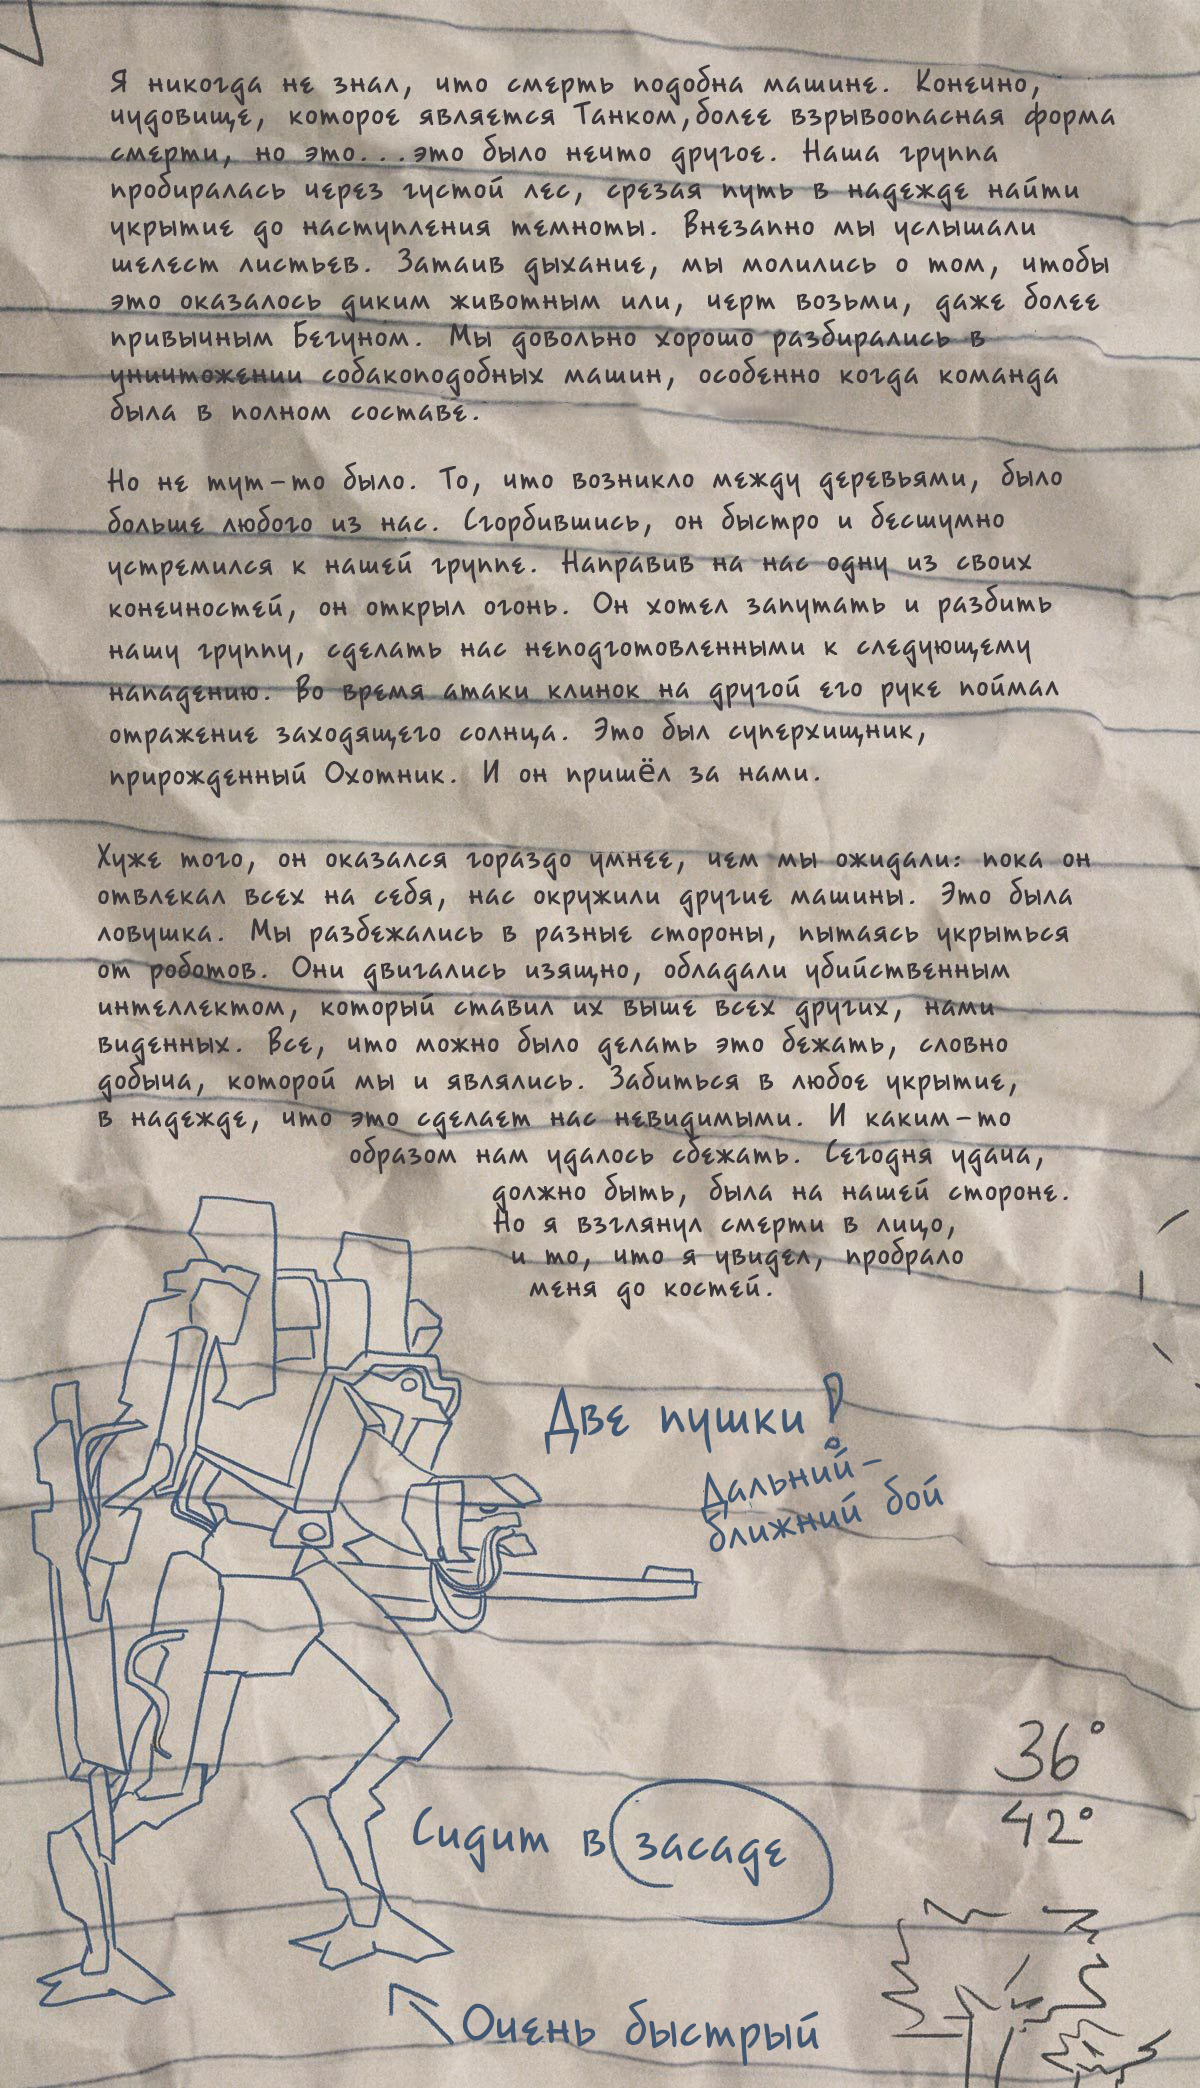 Я никогда не знал, что смерть подобна машине. Конечно,
чудовище, которое является Танком,более взрывоопасная форма
смерти, но это...это было нечто другое. Наша группа
пробиралась через густой лес, срезая путь в надежде найти
укрытие до наступления темноты. Внезапно мы услышали
шелест листьев. Затаив дыхание, мы молились о том, чтобы
это оказалось диким животным или, черт возьми, даже более
привычным Бегуном. Мы довольно хорошо разбирались в
уничтожении собакоподобных машин, особенно когда команда
была в полном составе.
Но не тут-то было. То, что возникло между деревьями, было
больше любого из нас. Сгорбившись, он быстро и бесшумно
устремился к нашей группе. Направив на нас одну из своих
конечностей, он открыл огонь. Он хотел запутать и разбить
нашу группу, сделать нас неподготовленными к следующему
нападению. Во время атаки клинок на другой его руке поймал
отражение заходящего солнца. Это был суперхищник,
прирожденный Охотник. И он пришёл за нами.
Хуже того, он оказался гораздо умнее, чем мы ожидали: пока он
отвлекал всех на себя, нас окружили другие машины. Это была
ловушка. Мы разбежались в разные стороны, пытаясь укрыться
от роботов. Они двигались изящно, обладали убийственным
интеллектом, который ставил их выше всех других, нами
виденных. Все, что можно было делать это бежать, словно
добыча, которой мы и являлись. Забиться в любое укрытие,
в надежде, что это сделает нас невидимыми. И каким-то
образом нам удалось сбежать. Сегодня удача,
должно быть, была на нашей стороне.
Но я взглянул смерти в лицо,
и то, что я увидел, пробрало
меня до костей.
Две пушки!
Дальний-
ближний бой
36°
42°
Сидит в засаде
Очень быстрый